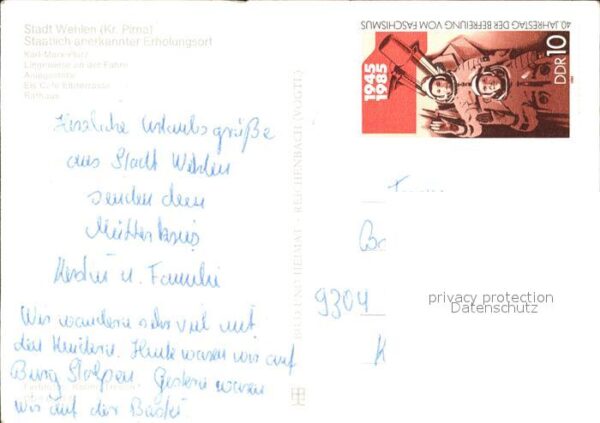 Stadt Wehlen (Kr. Pirna)
Staatlich anerkannter Erholungsort
Karl-Marx-Platz
an der Fähre
Rathaus
Herzliche Urlaubsgrüße
aus Stadt Wehlen
senden dem
Mütterkreis
Kerstin u. Familie
Wir wandern sehr viel mit
den Kindern. Heute waren wir auf
Burg Stolpen. Gestern waren
wir auf der Bastei
BILD UND HEIMAT · REICHENBACH (VOGTL)
40. JAHRESTAG DER BEFREIUNG VOM FASCHISMUS
1945
1985
DDR 10
9304
K
privacy protection
Datenschutz